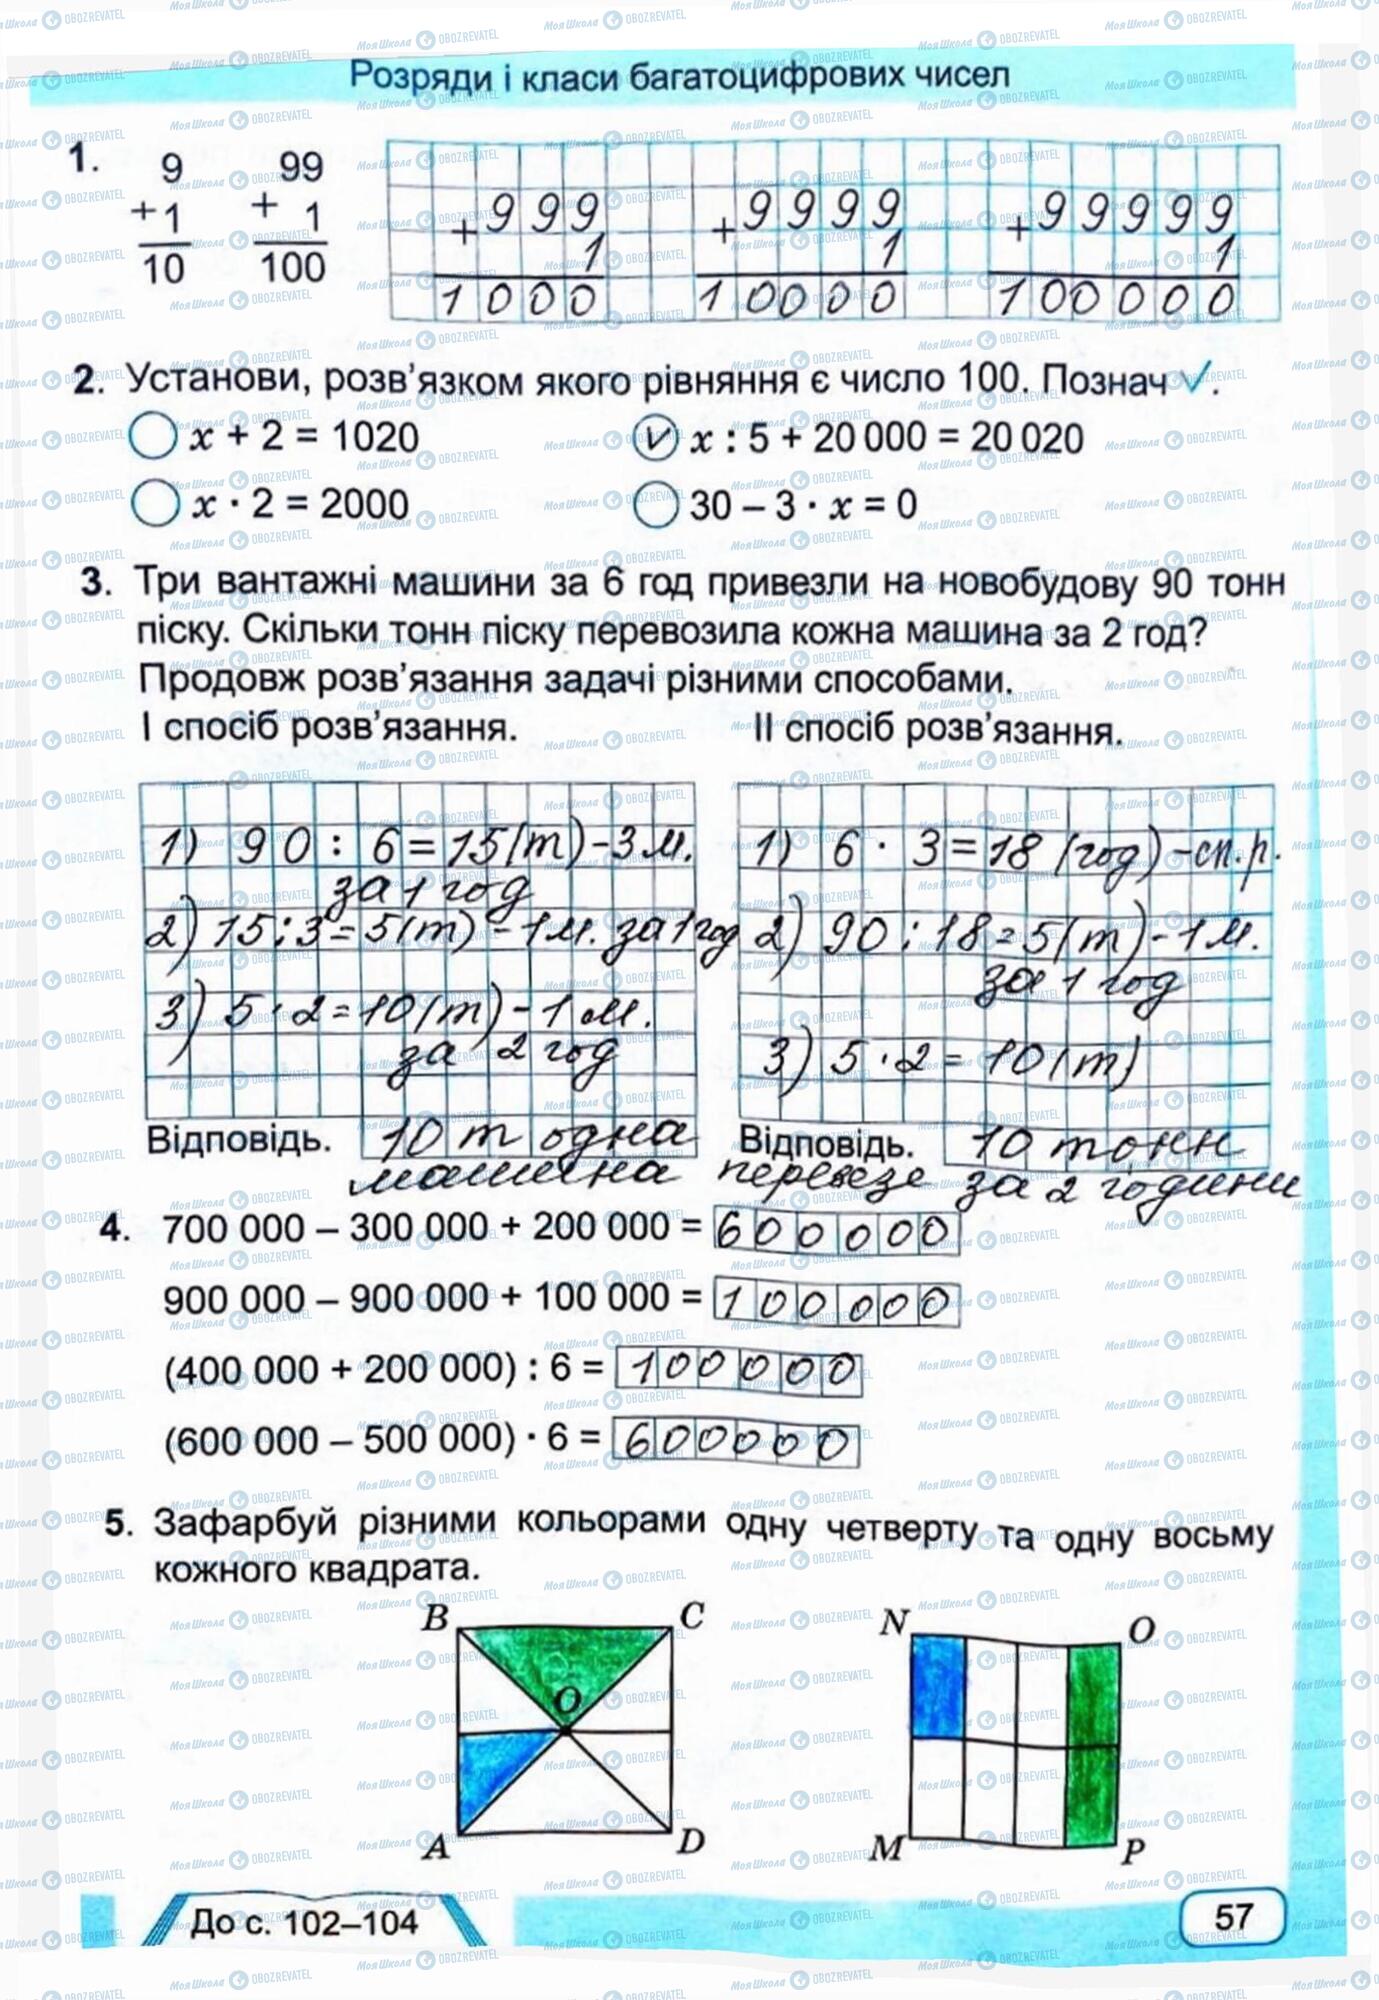 Розряди і класи багатоцифрових чисел
1.
9
+ 1
10
99
+ 1
100
+ 999
1
1000
+ 9999
1
10000
+ 99999
1
100000
2. Установи, розв'язком якого рівняння є число 100. Познач √.
x + 2 = 1020
V x : 5 + 20 000 = 20 020
x · 2 = 2000
30 – 3 · x = 0
3. Три вантажні машини за 6 год привезли на новобудову 90 тонн
піску. Скільки тонн піску перевозила кожна машина за 2 год?
Продовж розв'язання задачі різними способами.
І спосіб розв'язання.
ІІ спосіб розв'язання.
1) 90 : 6 = 15 (т) – 3 м.
за 1 год
2) 15 : 3 = 5 (т) – 1 м. за 1 год
3) 5 · 2 = 10 (т) – 1 м.
за 2 год
1) 6 · 3 = 18 (год) – сп. р.
2) 90 : 18 = 5 (т) – 1 м.
за 1 год
3) 5 · 2 = 10 (т)
Відповідь. 10 т одна
Відповідь. 10 тонн
машина перевезе за 2 години
4. 700 000 – 300 000 + 200 000 = 600000
900 000 – 900 000 + 100 000 = 100000
(400 000 + 200 000) : 6 = 100000
(600 000 – 500 000) · 6 = 600000
5. Зафарбуй різними кольорами одну четверту та одну восьму
кожного квадрата.
B C
O
A D
N O
M P
До с. 102–104
57
МояШкола OBOZREVATEL